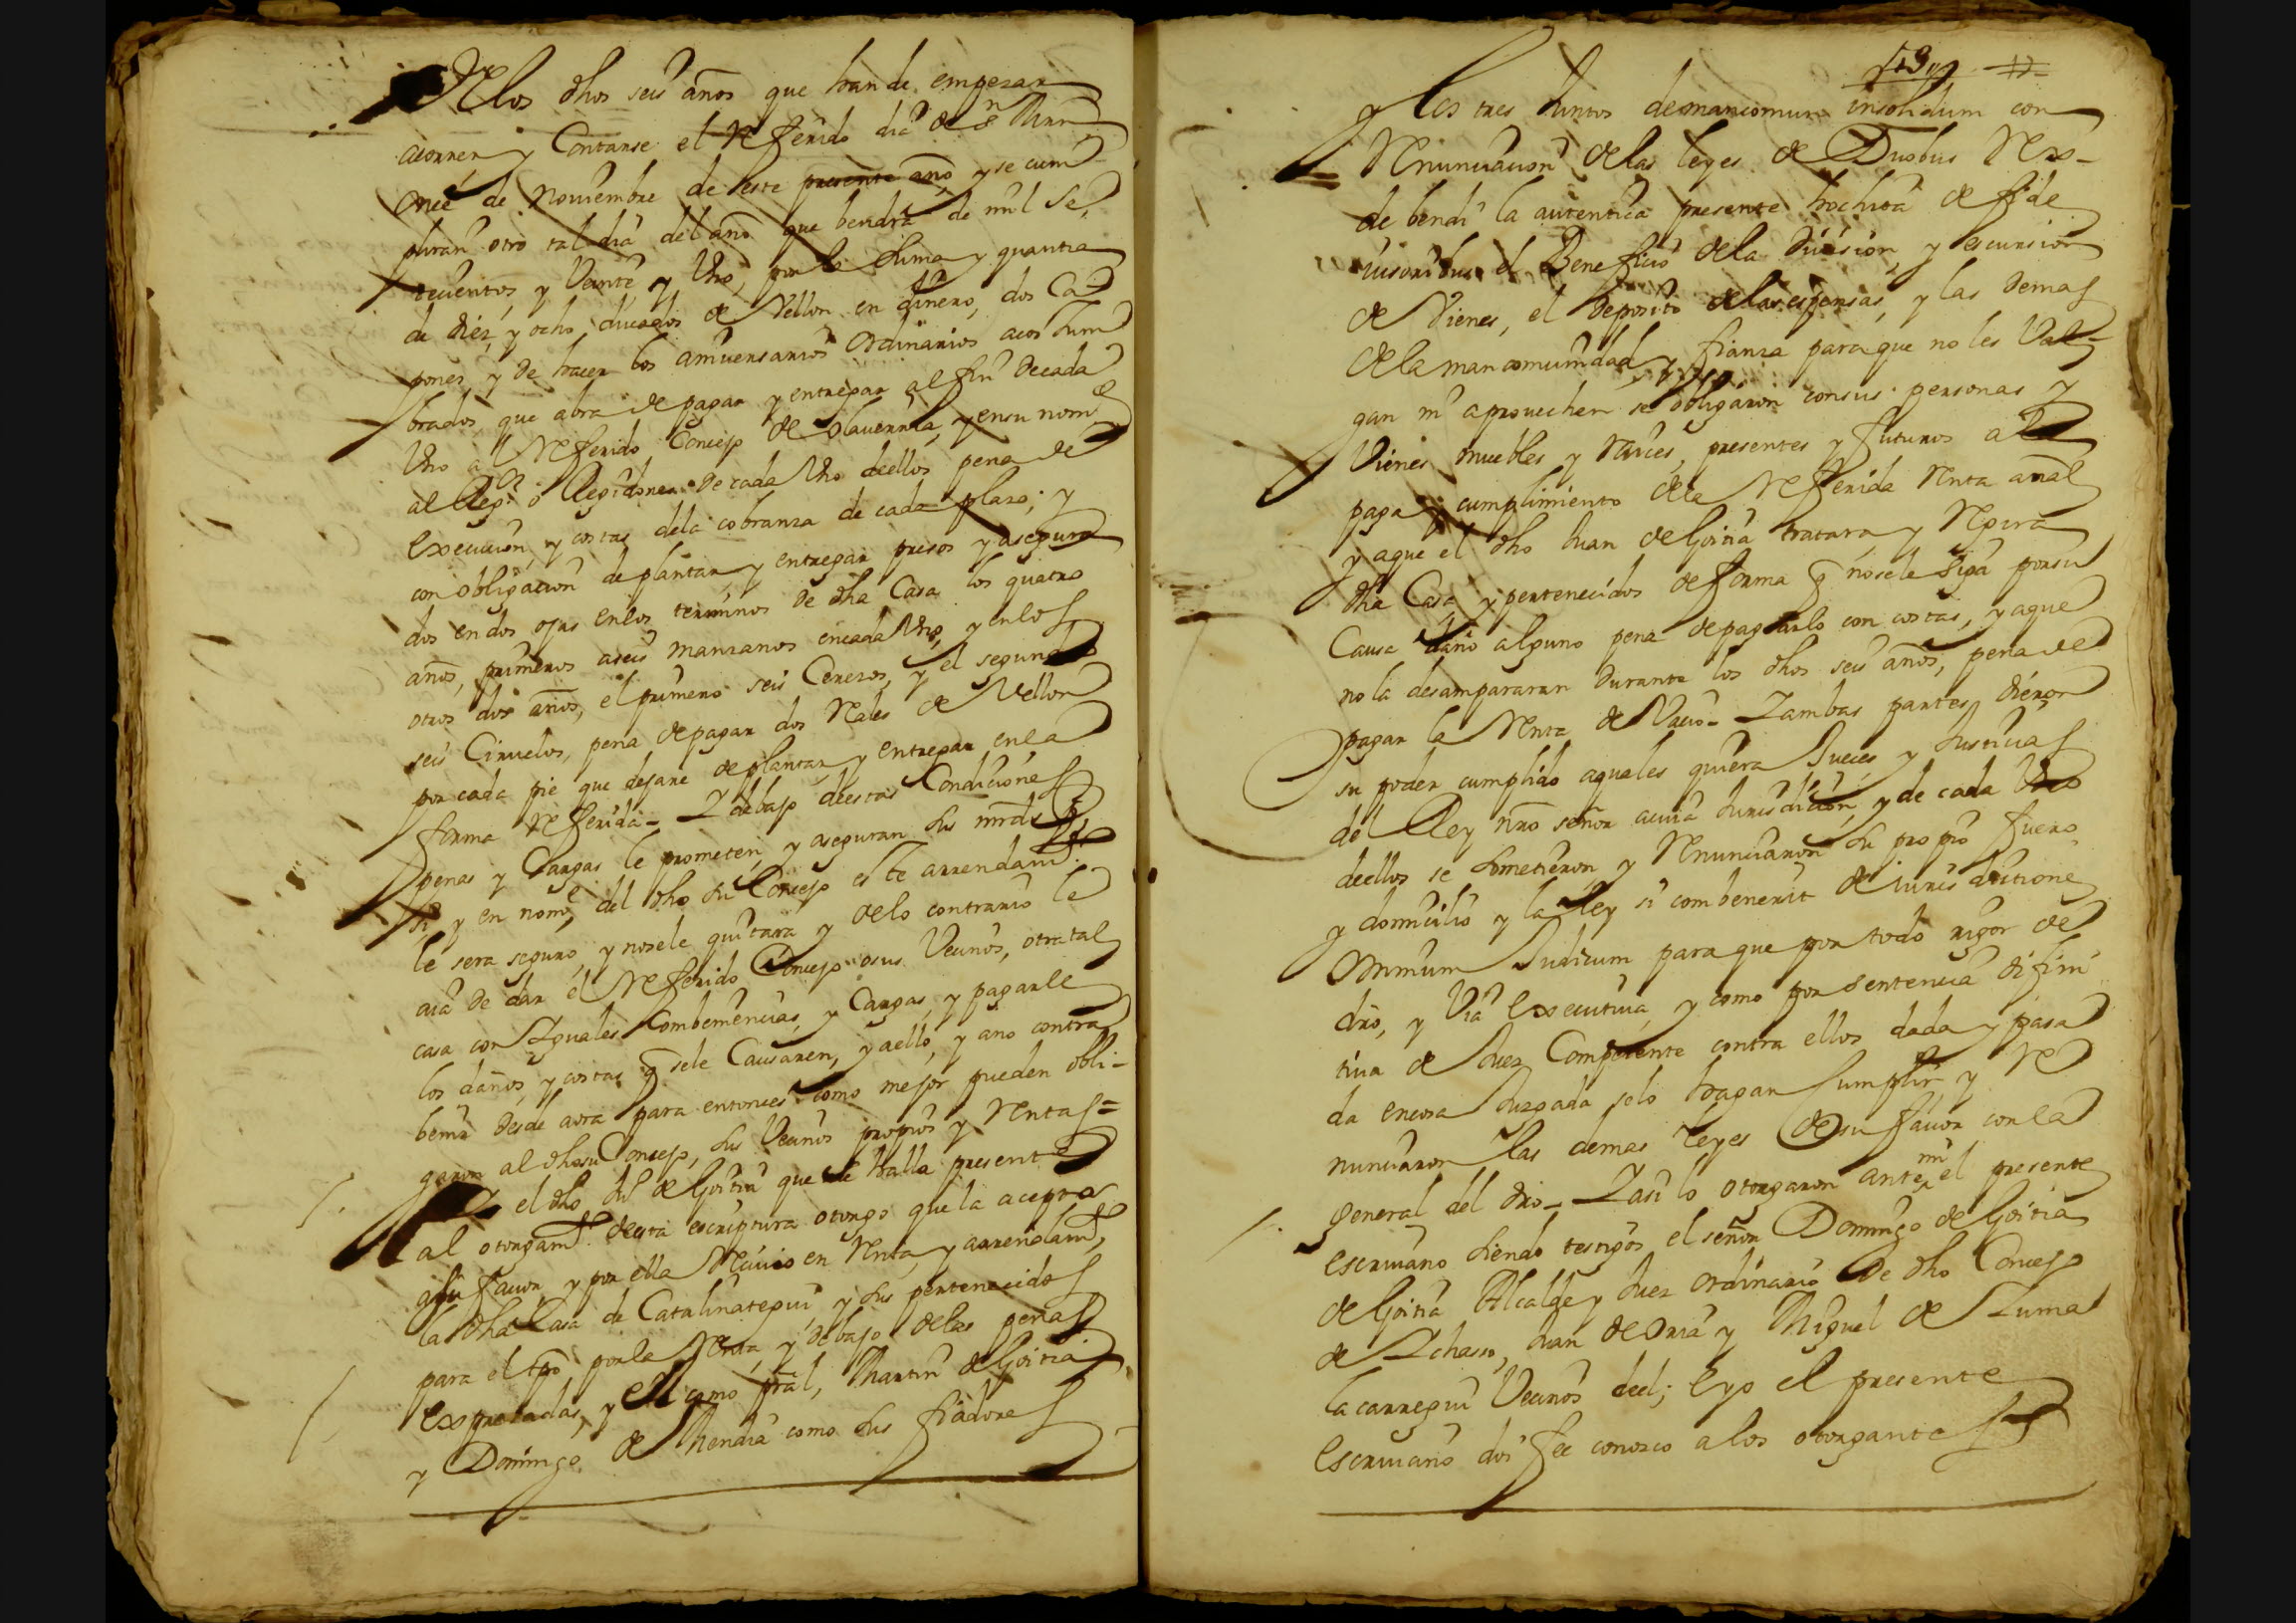 De los dhos seis años que han de empezar
acorrer y Contarse el Referido dia de Sn Mrn
once de Nouiembre de este presente año, y se cum
pliran otro tal dia del año que bendrá de mil Se,
tecientos, y Veinte, y Vno, por la suma y quantia
de diez, y ocho ducados de Vellon en dinero, dos Ca
pones, y de hacer los aniuersarios Ordinarios acostum
brados, que abra de pagar y entregar al fin de cada
Vno al Referido Concejo de, y en su nome
al Regor o Regidores de cada Vno dellos pena de
Execucion, y costas dela cobranza de cada plazo; y
con obligacion de plantar, y entregar presos y asegura
dos en dos ojas enlos terminos de dha Casa los quatro
años, primeros aseis manzanos encada Vno, y enlos
otros dos años, el primero seis Cerezos, y el segundo
seis Ciruelos, pena de pagar dos Reales de Vellon
por cada pie que dejare de plantar, y entregar enla
forma Referida - I debajo destas Condiciones
penas y Cargas le prometen, y aseguran sus mrds
si y en nome, del dho su Concejo este arrendamto
le sera seguro, y nosele quitara y delo contrario le
aia de dar el Referido Concejo osus Vecinos, otra tal
casa con Iguales Combeniencias, y Cargas, y pagarle
los daños, y costas q sele Causaren, y aello, y ano contra
benir desde aora para entonces como mejor pueden obli-
garon al dhosu Concejo, sus Vecinos propios y Rentas=
el dho Jn de Goitia que se halla presente
al otorgamto desta escriptura otorgo que la acepta
asu fauor, y por ella Reciuio en Renta, y arrendamto,
la dha Casa de Catalinategui, y sus pertenecidos
para el tpo por la Renta, y debajo delas penas
Expresadas, y El como pral, Martin de Goitia
y Domingo de Mendia como sus fiadores
139
y los tres Juntos demancomun insolidum con
Renunciacion de las leyes de Duobus Rex-
de bendi la autentica presente hochita de fide
iusoribus el Beneficio dela Diuision, y escursion
de Vienes, el deposito delas espensas, y las demas
dela mancomunidad, y fianza paraque no les Val-
gan ni aprouechen se obligaron consus personas y
Vienes muebles y Raices, presentes y futuros ala
paga y cumplimiento dela Referida Renta anal
y aque el dho Juan de Goitia tratara y Regira
dha Casa, y pertenecidos de forma q nosele siga porsu
Causa daño alguno pena depagarlo con costas, y aque
no la desampararan durante los dhos seis años, pena de
pagar la Renta de Vacio - I ambas partes dieron
su poder cumplido aquales quiera Jueces, y Justicias
del Rey nro señor acuia Jurisdicion, y de cada Vno
dellos se sometieron y Renunciaron su propio fuero
y domicilio y la ley si combenerit de iurisdictione
Omnium Judicum para que por todo rigor de
dro, y Via Executiua, y como por sentencia difini
tiua de Juez Competente contra ellos dada y pasa
da encosa Juzgada selo hagan Cumplir y Re
nunciaron las demas leyes de su fauor con la
general del dro - I asi lo otorgaron ante mi el presente
escriuano siendo testigos el señor Domingo de Goitia
de Goitia Alcalde y Juez ordinario de dho Concejo
de Ichaso, Juan de Oria y Miguel de Izuma
lacarregui Vecinos del; E yo el presente
Escriuano doi fee conozco alos otorgantes